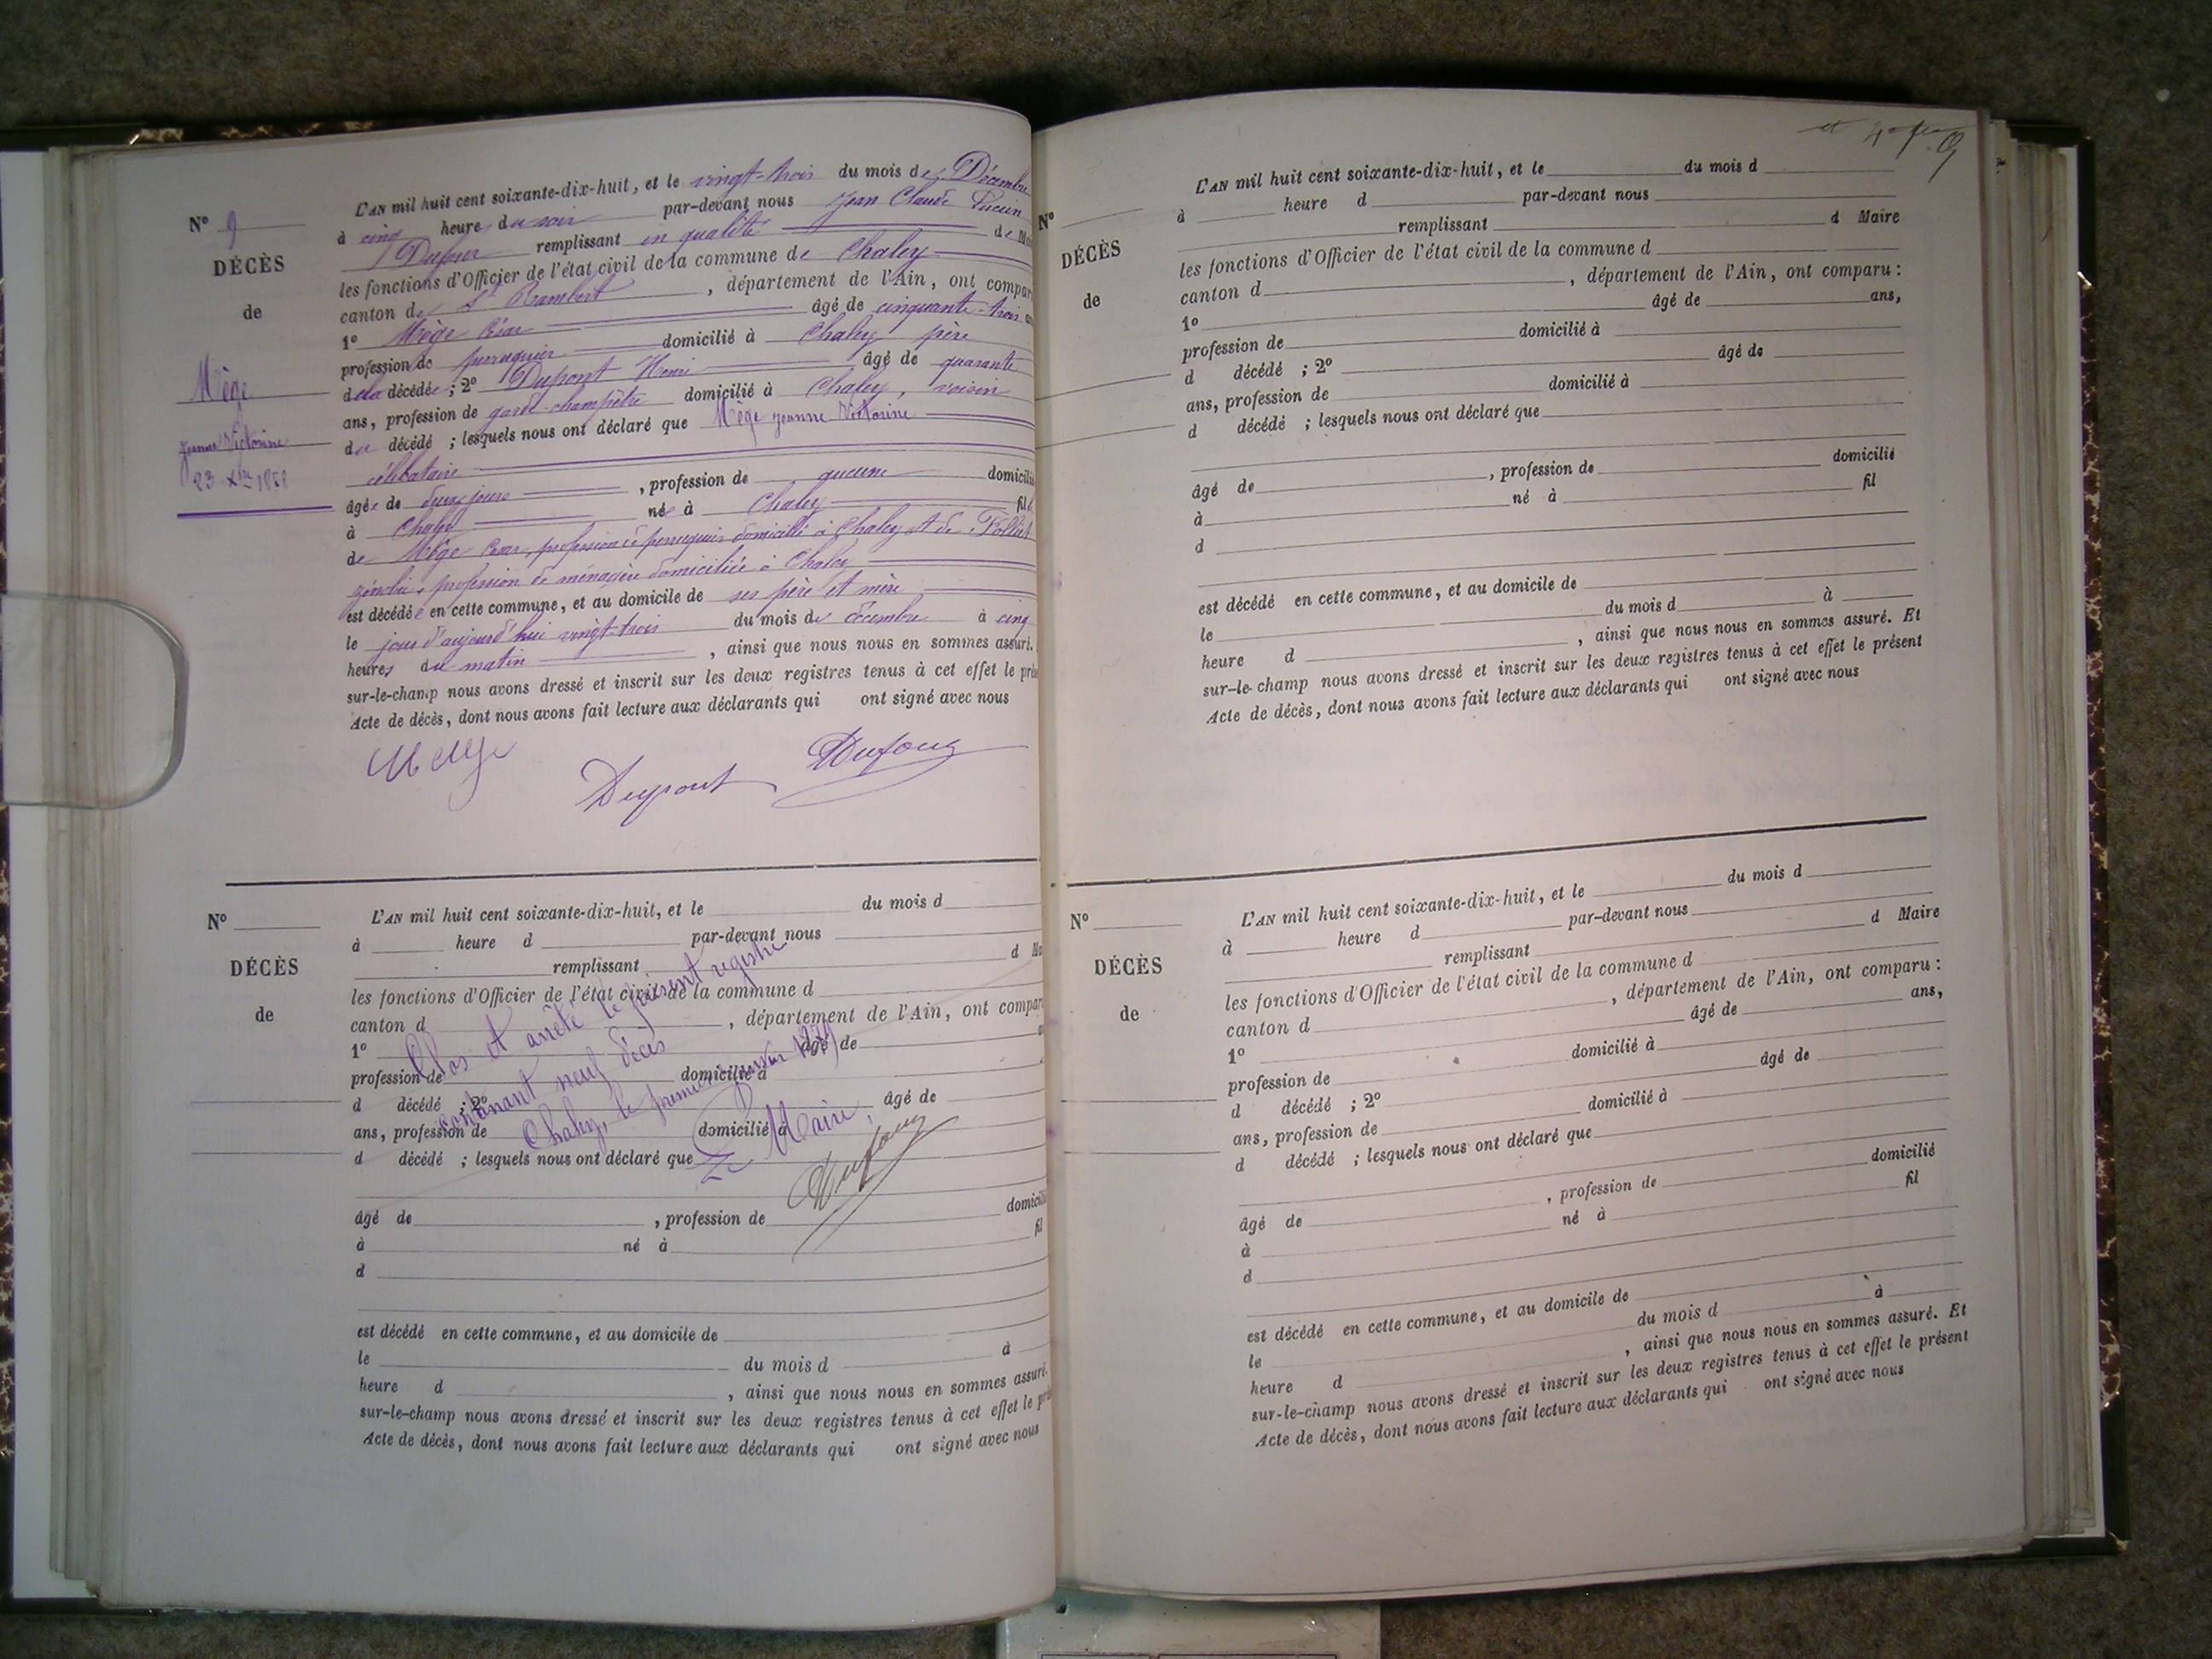 N° 9
DÉCÈS
de
Mège
Jeanne Victorine
23 Xbre 1878
L'AN mil huit cent soixante-dix-huit, et le vingt-trois du mois de Décembre
à cinq heure du soir par-devant nous Jean Claude Lucien
Dufour remplissant en qualité de M
les fonctions d'Officier de l'état civil de la commune de Chaley
canton de St Rambert, département de l'Ain, ont compar
1° Mège César âgé de cinquante-trois an
profession de perruquier domicilié à Chaley père
de la décédée ; 2° Dupont Henri âgé de quarante
ans, profession de garde-champêtre domicilié à Chaley, voisin
du décédé ; lesquels nous ont déclaré que Mège Jeanne Victorine
célibataire
âgée de deux jours, profession de aucune domicilié
à Chaley née à Chaley fille
de Mège César, profession de perruquier domicilié à Chaley et de Follut
profession de ménagère domiciliée à Chaley
est décédée en cette commune, et au domicile de ses père et mère
le jour d'aujourd'hui vingt-trois du mois de décembre à cinq
heures du matin, ainsi que nous nous en sommes assuré.
sur-le-champ nous avons dressé et inscrit sur les deux registres tenus à cet effet le prés
Acte de décès, dont nous avons fait lecture aux déclarants qui ont signé avec nous
Mège
Dupont
Dufour
N°
DÉCÈS
de
L'AN mil huit cent soixante-dix-huit, et le du mois d
à heure d par-devant nous
remplissant d Ma
les fonctions d'Officier de l'état civil de la commune d
canton d , département de l'Ain, ont compar
1° âgé de
profession de domicilié à
d décédé ; 2° âgé de
ans, profession de domicilié à
d décédé ; lesquels nous ont déclaré que
âgé de , profession de domicilié
à né à fil
d
est décédé en cette commune, et au domicile de
le du mois d à
heure d , ainsi que nous nous en sommes assuré.
sur-le-champ nous avons dressé et inscrit sur les deux registres tenus à cet effet le pré
Acte de décès, dont nous avons fait lecture aux déclarants qui ont signé avec nous
Clos et arrêté le présent registre
contenant neuf décès
Chaley, le premier janvier 1879
Le Maire,
Dufour
9
N°
DÉCÈS
de
L'AN mil huit cent soixante-dix-huit, et le du mois d
à heure d par-devant nous
remplissant d Maire
les fonctions d'Officier de l'état civil de la commune d
canton d , département de l'Ain, ont comparu :
1° âgé de ans,
profession de domicilié à
d décédé ; 2° âgé de
ans, profession de domicilié à
d décédé ; lesquels nous ont déclaré que
âgé de , profession de domicilié
à né à fil
d
est décédé en cette commune, et au domicile de
le du mois d à
heure d , ainsi que nous nous en sommes assuré. Et
sur-le-champ nous avons dressé et inscrit sur les deux registres tenus à cet effet le présent
Acte de décès, dont nous avons fait lecture aux déclarants qui ont signé avec nous
N°
DÉCÈS
de
L'AN mil huit cent soixante-dix-huit, et le du mois d
à heure d par-devant nous
remplissant d Maire
les fonctions d'Officier de l'état civil de la commune d
canton d , département de l'Ain, ont comparu :
1° âgé de ans,
profession de domicilié à
d décédé ; 2° âgé de
ans, profession de domicilié à
d décédé ; lesquels nous ont déclaré que
âgé de , profession de domicilié
à né à fil
d
est décédé en cette commune, et au domicile de
le du mois d à
heure d , ainsi que nous nous en sommes assuré. Et
sur-le-champ nous avons dressé et inscrit sur les deux registres tenus à cet effet le présent
Acte de décès, dont nous avons fait lecture aux déclarants qui ont signé avec nous